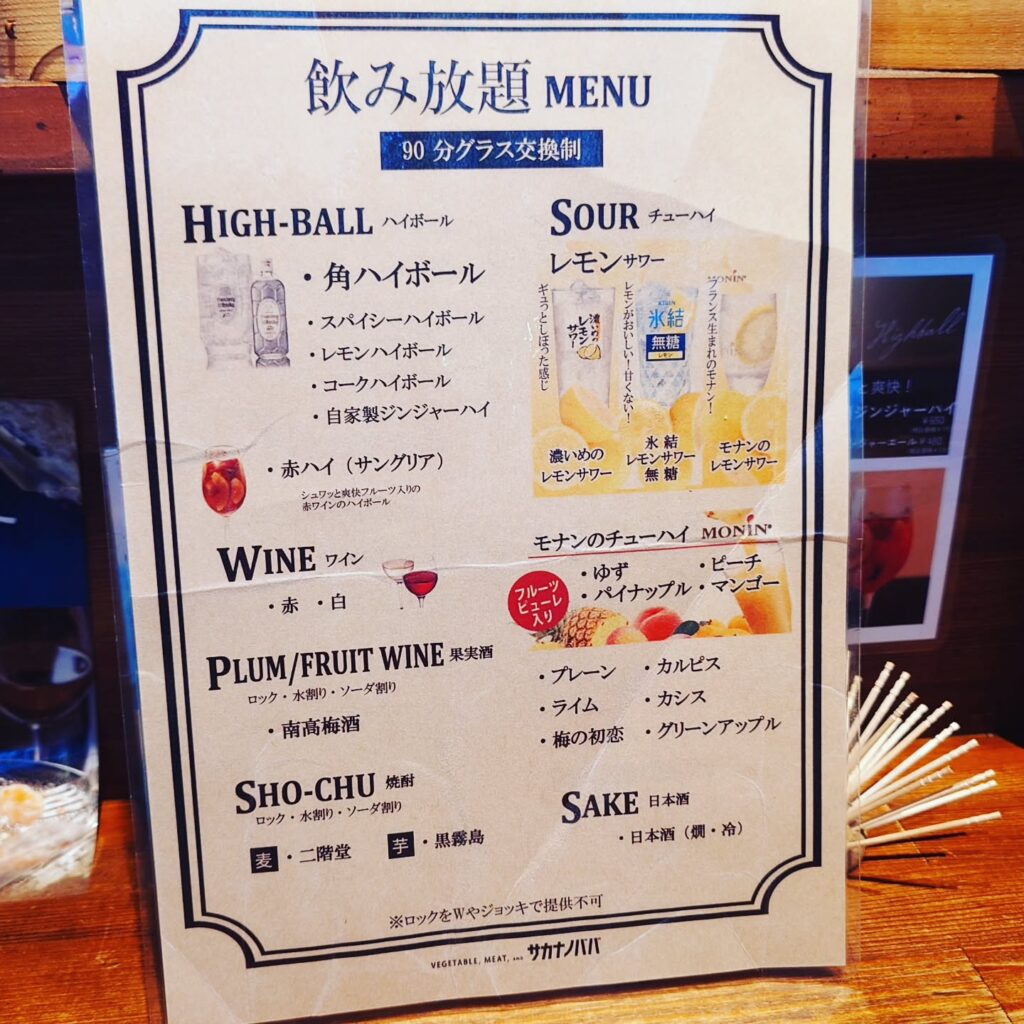 飲み放題 MENU
90 分グラス交換制
HIGH-BALL ハイボール
・角ハイボール
・スパイシーハイボール
・レモンハイボール
・コークハイボール
・自家製ジンジャーハイ
・赤ハイ（サングリア）
シュワッと爽快フルーツ入りの
赤ワインのハイボール
WINE ワイン
・赤 ・白
PLUM/FRUIT WINE 果実酒
ロック・水割り・ソーダ割り
・南高梅酒
SHO-CHU 焼酎
ロック・水割り・ソーダ割り
麦 ・二階堂 芋 ・黒霧島
SOUR チューハイ
レモンサワー
ギュっとしぼった感じ
濃いめの
レモン
サワー
レモンがおいしい！甘くない！
KIRIN
氷結
無糖
レモン
MONIN
フランス生まれのモナン！
濃いめの
レモンサワー
氷結
レモンサワー
無糖
モナンの
レモンサワー
モナンのチューハイ MONIN
フルーツ
ピューレ
入り
・ゆず ・ピーチ
・パイナップル ・マンゴー
・プレーン ・カルピス
・ライム ・カシス
・梅の初恋 ・グリーンアップル
SAKE 日本酒
・日本酒（燗・冷）
※ロックをWやジョッキで提供不可
VEGETABLE, MEAT, AND サカナノババ
Highball
と爽快！
ジンジャーハイ
ジャーエール ¥480